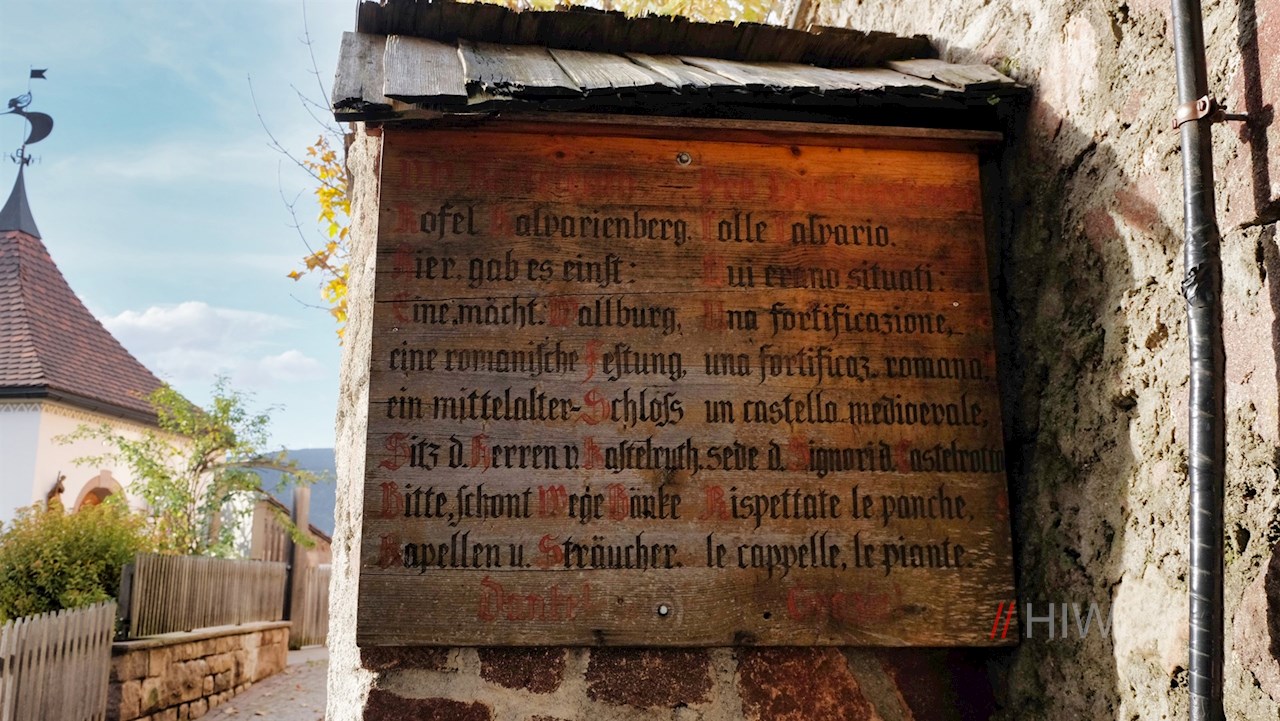 Kofel Kalvarienberg. Colle Calvario.
Hier gab es einst: Qui erano situati:
Eine mächt. Wallburg, Una fortificazione,
eine romanische Festung, una fortificaz. romana,
ein mittelalter-Schloss un castello medioevale,
Sitz d. Herren v. Kastelruth. sede d. Signori d. Castelrotto
Bitte, schont Wege Bänke Rispettate le panche,
Kapellen u. Sträucher. le cappelle, le piante.
Danke! Grazie!
// HIW